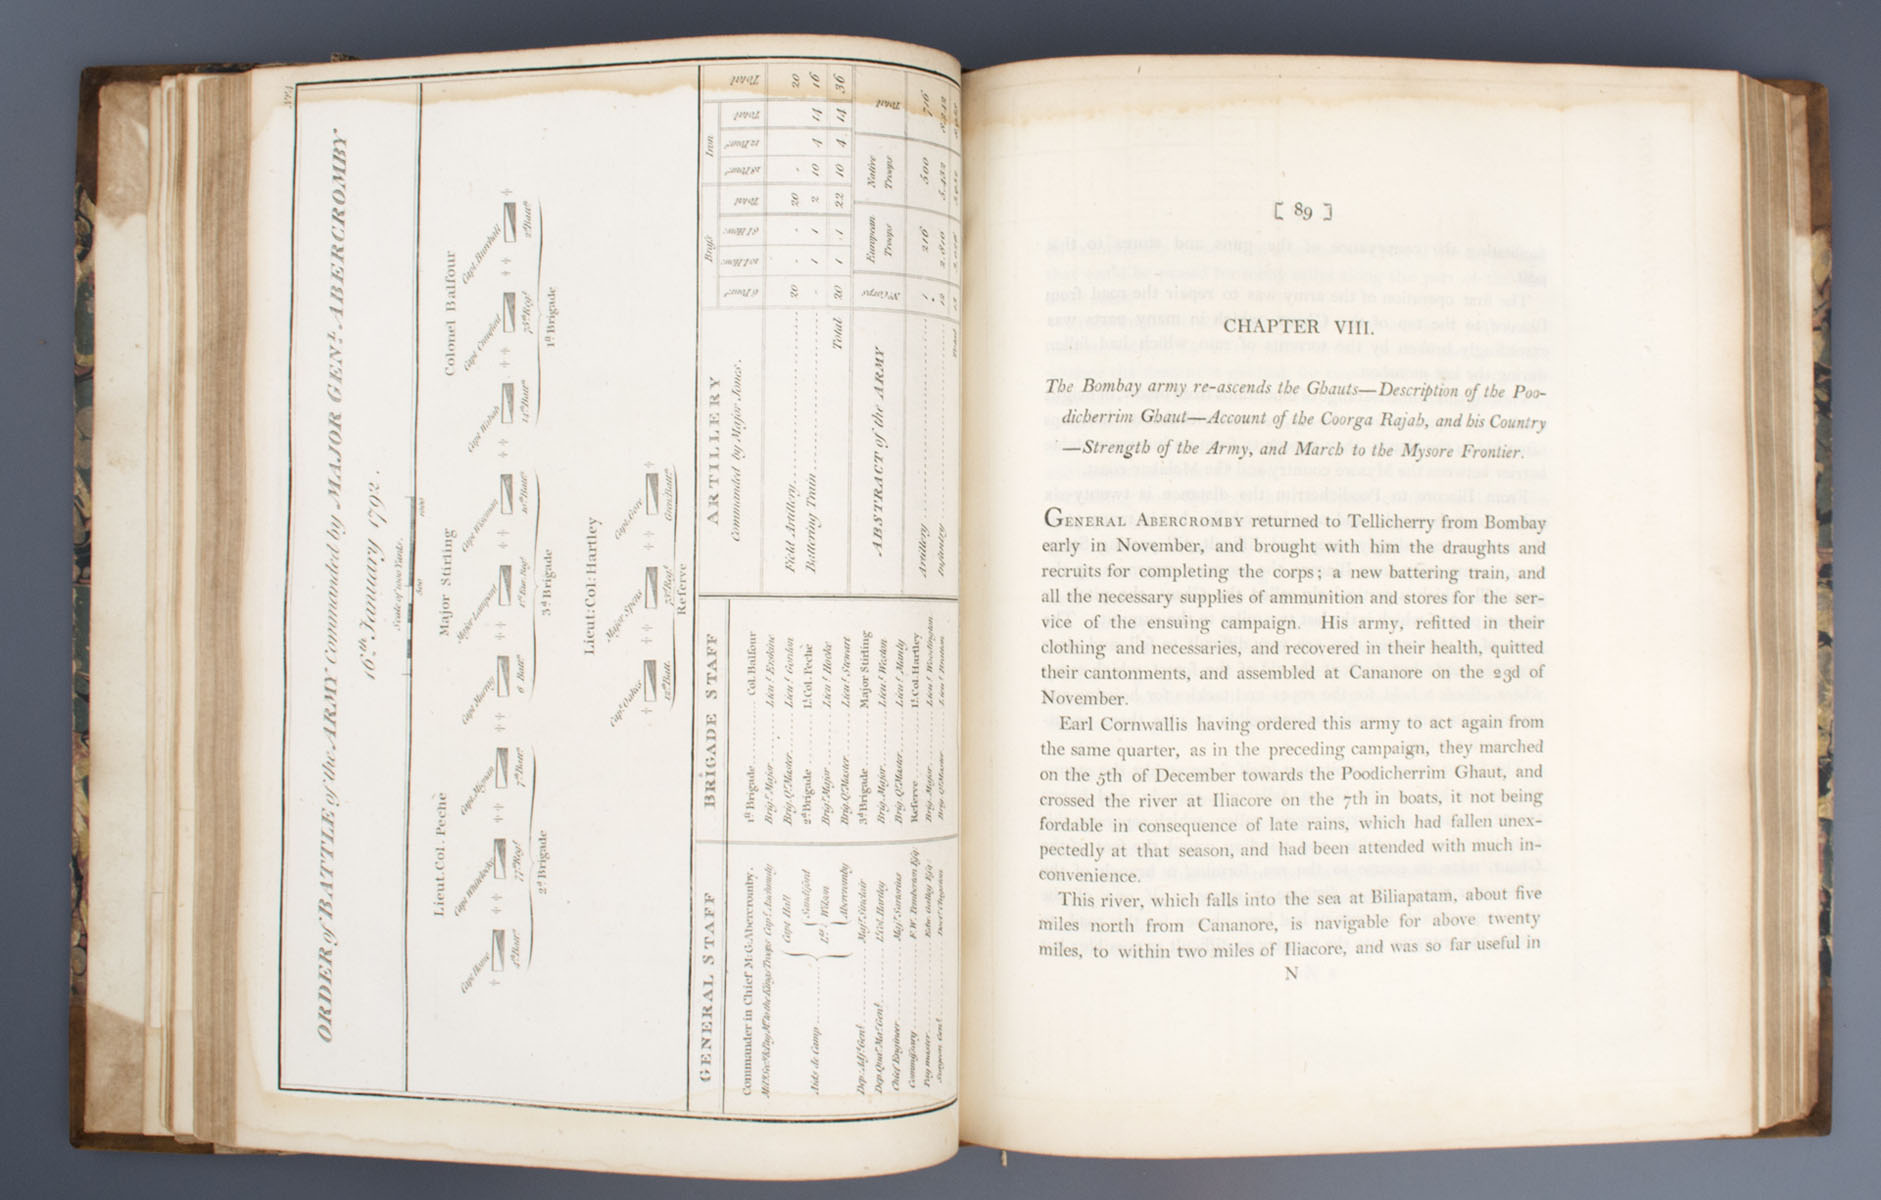 ORDER of BATTLE of the ARMY Commanded by MAJOR GEN.L ABERCROMBY
16.th January 1792.
Scale of 1000 Yards.
500 1000
Lieut. Col. Peché
Major Stirling
Colonel Balfour
Capt. Howe
Capt. Mignan
Capt. Murray
Major Lampard
Capt. Wiseman
4.th Batt.n
77.th Reg.t
7.th Batt.n
6 Batt.n
1.st Eur. Reg.t
10.th Batt.n
14.th Batt.n
75.th Reg.t
2.d Batt.n
2.d Brigade
3.d Brigade
1.st Brigade
Lieut: Col: Hartley
Capt. Oakes
Major Spens
Capt. Gore
12.th Batt.
73.d Reg.t
Gren. Batt.n
Reserve
GENERAL STAFF
Commander in Chief M: G: Abercromby.
Capt. Hall
Aids de Camp
L.ts
Sandiford
Wilson
Abercromby
Dep: Adj.t Gen.l Maj.r Sinclair
Dep. Quar.r Mas.r Gen.l L.t Col. Harley
Chief Engineer Maj.r Sartorius
Commissary F. W. Pemberton Esq.r
Pay master
Surgeon Gen.l
BRIGADE STAFF
1.st Brigade Col. Balfour
Brig.r Major Lieu.t Erskine
Brig. Q.r Master Lieu.t Gordon
2.d Brigade L.t Col. Peché
Brig.r Major Lieu.t Hooke
Brig. Q.r Master Lieu.t Stewart
3.d Brigade Major Stirling
Brig. Major Lieu.t Weston
Brig. Q.r Master Lieu.t Manly
Reserve L.t Col. Hartley
Brig. Major Lieu.t Woodington
Brig. Q.r Master
ARTILLERY
Commanded by Major Jones.
Brass Iron
6 Pour.s 10 I How.r 8 I How.r Total 18 Pour.s 12 Pour.s Total Total
Field Artillery 20 - - 20 - 20
Battering Train - 1 1 2 10 4 14 16
Total 20 1 1 22 10 4 14 36
ABSTRACT of the ARMY
N.o Corps European Troops Native Troops Total
Artillery 1 216 500 716
Infantry 12 2,810 5,432 8,242
Total
[ 89 ]
CHAPTER VIII.
The Bombay army re-ascends the Ghauts—Description of the Poo-
dicherrim Ghaut—Account of the Coorga Rajah, and his Country
—Strength of the Army, and March to the Mysore Frontier.
GENERAL ABERCROMBY returned to Tellicherry from Bombay
early in November, and brought with him the draughts and
recruits for completing the corps; a new battering train, and
all the necessary supplies of ammunition and stores for the ser-
vice of the ensuing campaign. His army, refitted in their
clothing and necessaries, and recovered in their health, quitted
their cantonments, and assembled at Cananore on the 23d of
November.
Earl Cornwallis having ordered this army to act again from
the same quarter, as in the preceding campaign, they marched
on the 5th of December towards the Poodicherrim Ghaut, and
crossed the river at Iliacore on the 7th in boats, it not being
fordable in consequence of late rains, which had fallen unex-
pectedly at that season, and had been attended with much in-
convenience.
This river, which falls into the sea at Biliapatam, about five
miles north from Cananore, is navigable for above twenty
miles, to within two miles of Iliacore, and was so far useful in
N